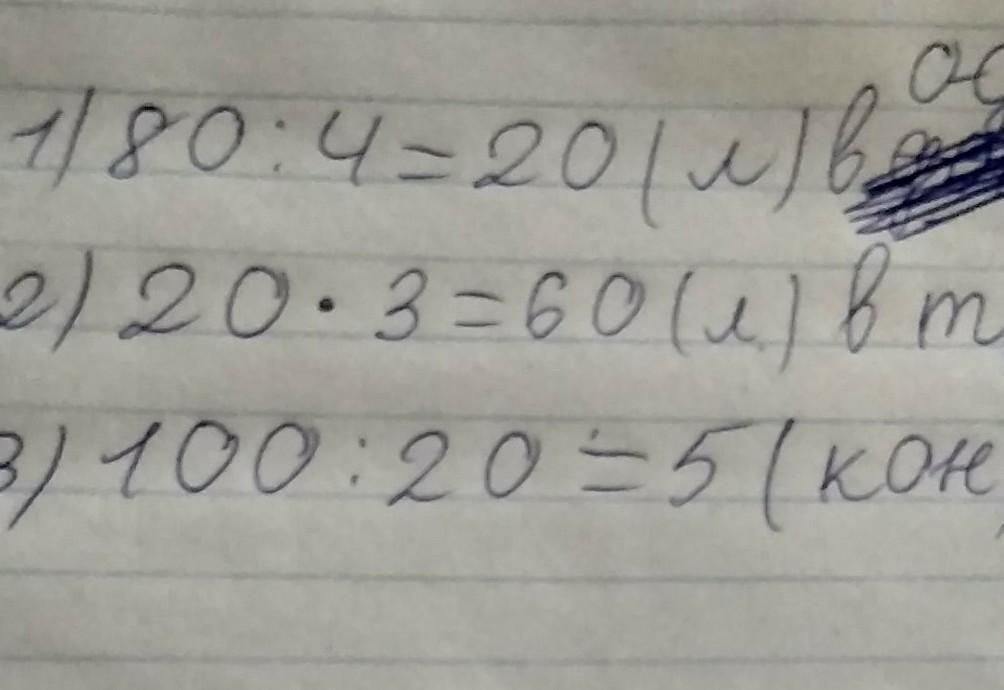 1) 80 : 4 = 20 (л) в
2) 20 · 3 = 60 (л) в
3) 100 : 20 = 5 (кон